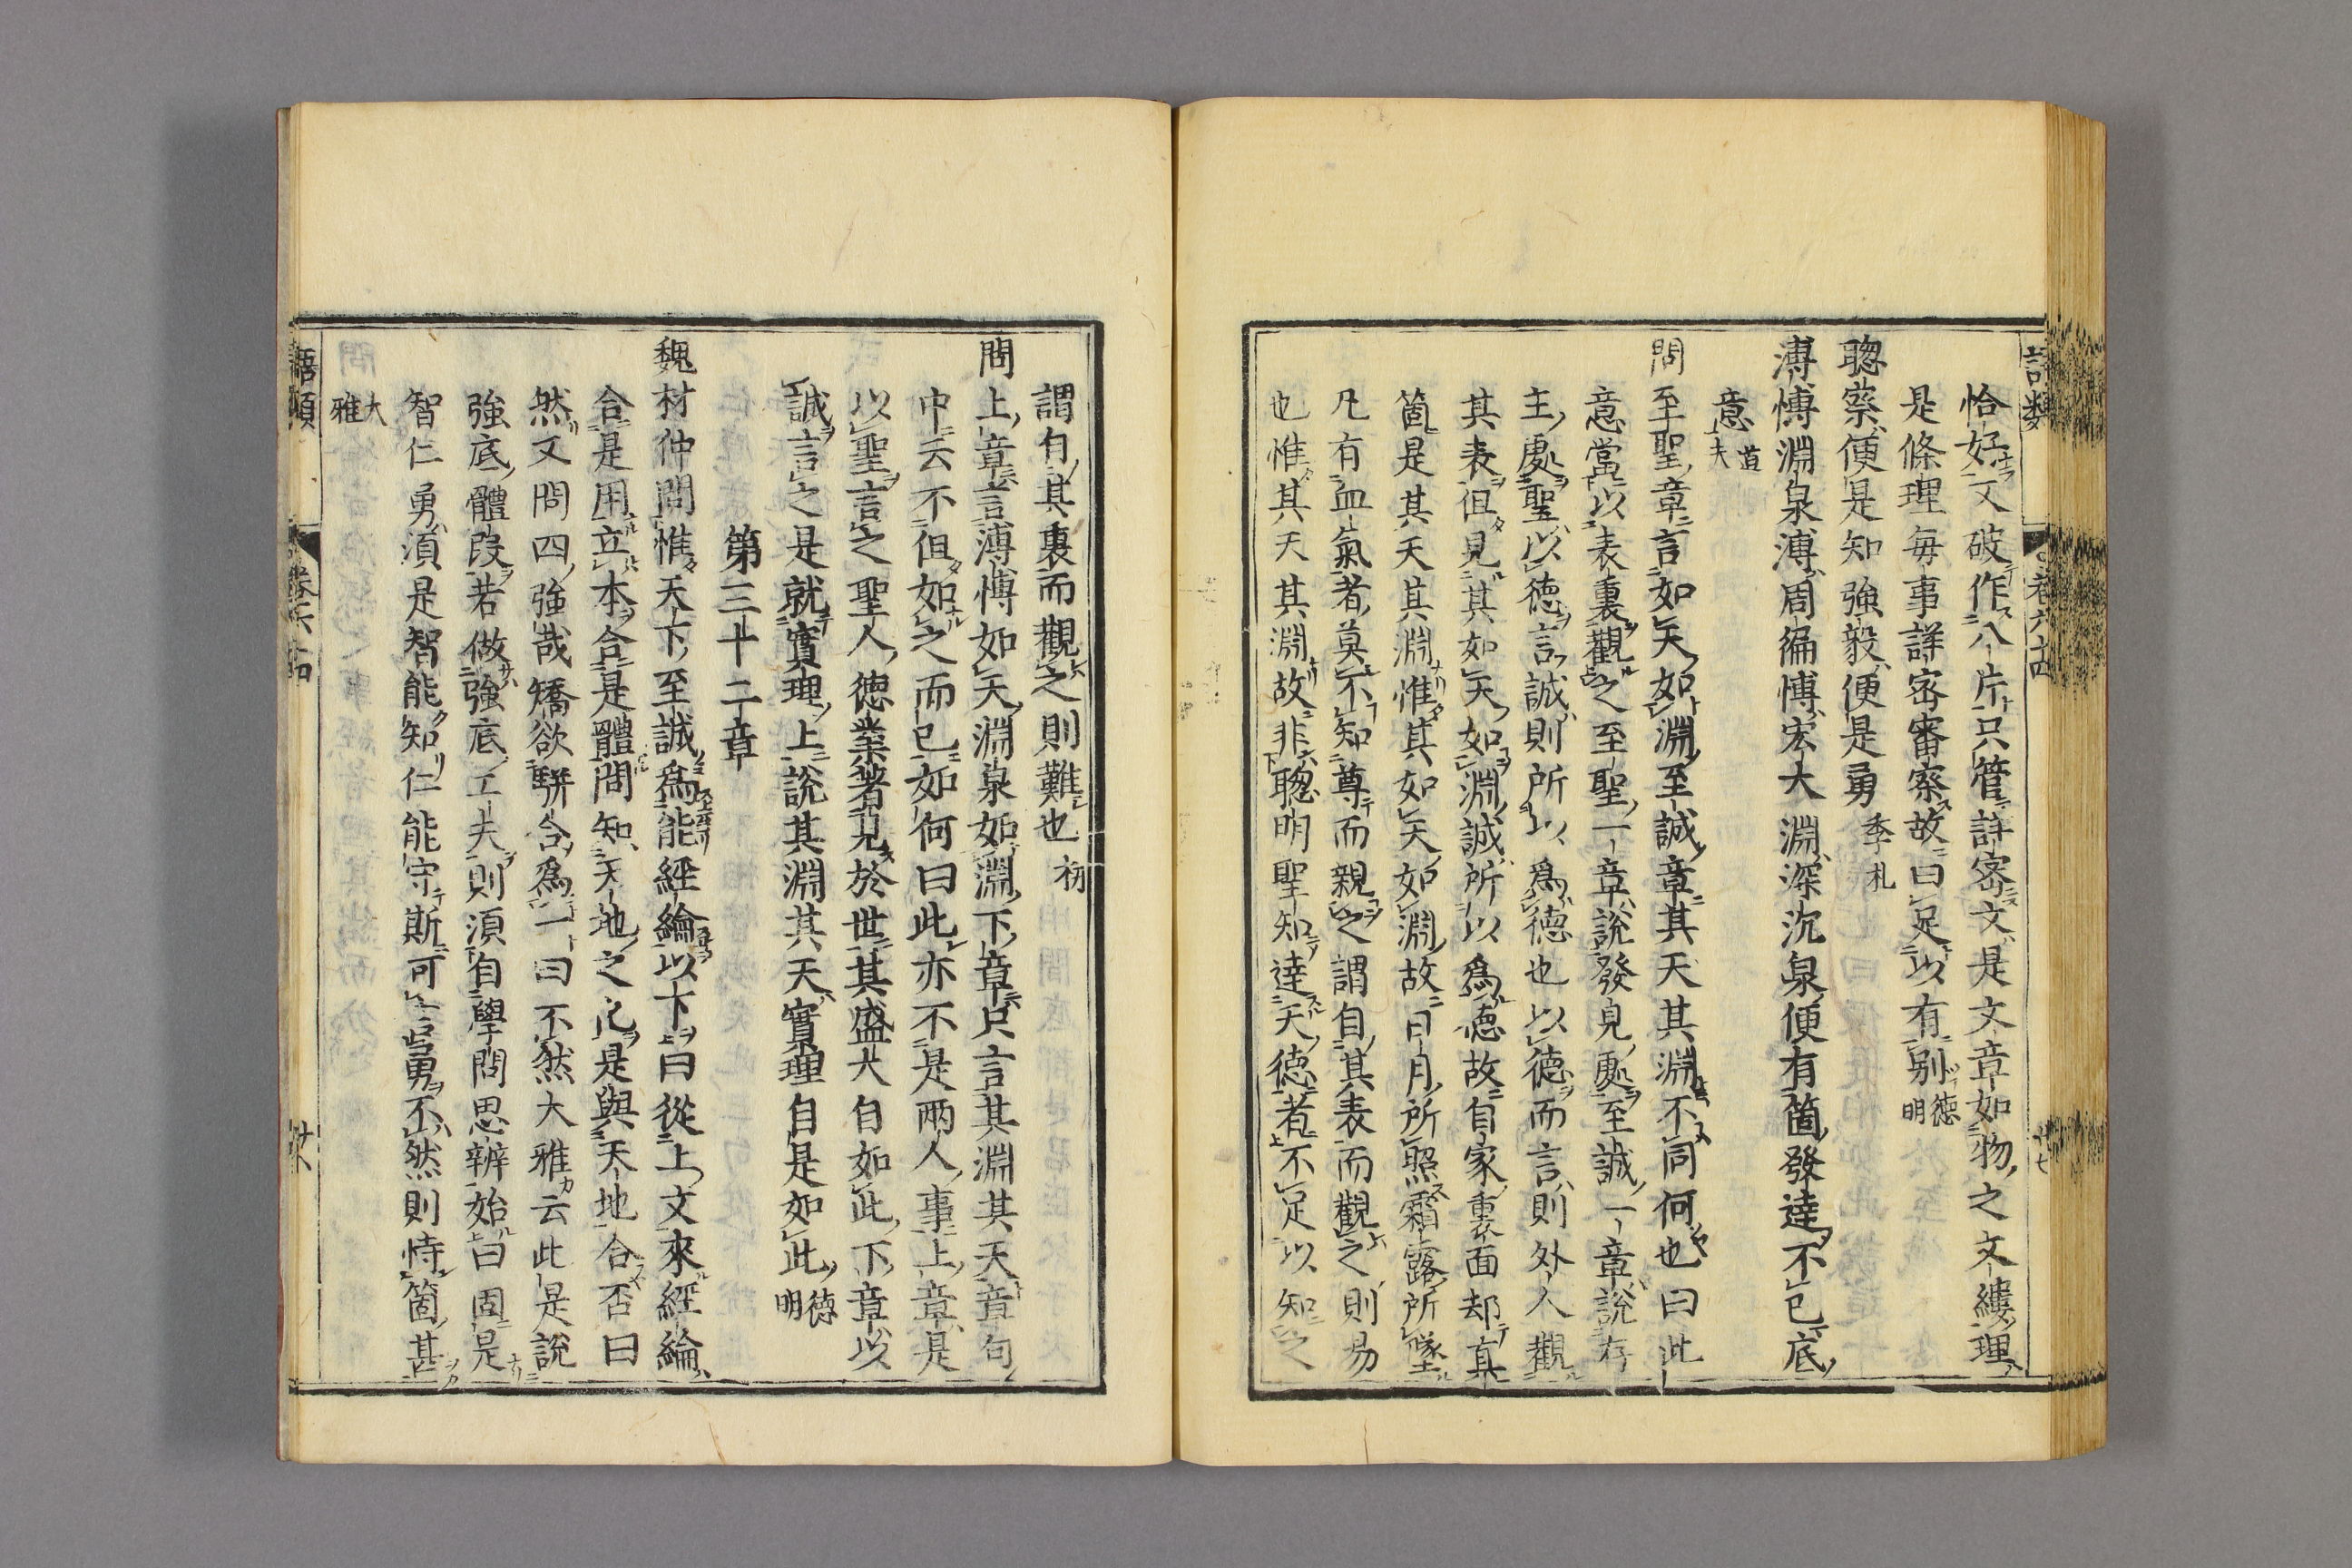 恰好又破作八片只管詳密文是文章如物之文縷理
是條理每事詳密審察故曰足以有別德明
聦察便是知強毅便是勇季札
溥慱淵泉溥周徧慱宏大淵深沉泉便有箇發逹不已底
意道夫
問至聖章言如天如淵至誠章其天其淵不同何也曰此
意當以表裏觀之至聖一章說發見處至誠一章說存
主處聖以德言誠則所以爲德也以德而言則外人觀
其表但見其如天如淵誠所以爲德故自家裏面却真
箇是其天其淵惟其如天如淵故日月所照霜露所墜
凡有血氣者莫不知尊而親之謂自其表而觀之則易
也惟其天其淵故非聦明聖知逹天德者不足以知之
謂自其裏而觀之則難也初
問上章言溥慱如天淵泉如淵下章只言其淵其天章句
中云不但如之而已如何曰此亦不是兩人事上章是
以聖言之聖人德業著見於世其盛大自如此下章以
誠言之是就實理上說其淵其天實理自是如此德明
第三十二章
魏材仲問惟天下至誠爲能經綸以下曰從上文來經綸
合是用立本合是體問知天地之化是與天地合否曰
然又問四強哉矯欲駢合爲一曰不然大雅云此是說
強底體段若做強底工夫則須自學問思辨始曰固是
智仁勇須是智能知仁能守斯可言勇不然則恃箇甚
大雅